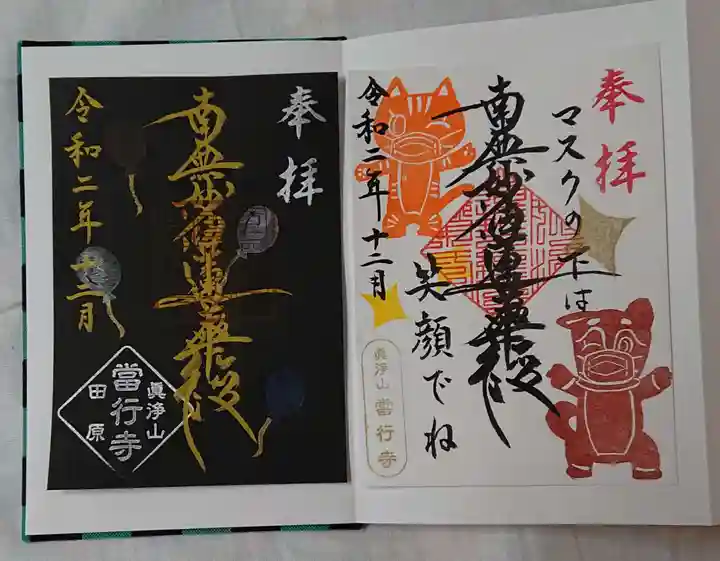 奉拝
南無妙法蓮華経
令和二年十二月
眞浄山
當行寺
田原
奉拝
マスクの下は
南無妙法蓮華経
笑顔でね
令和二年十二月
眞浄山 當行寺